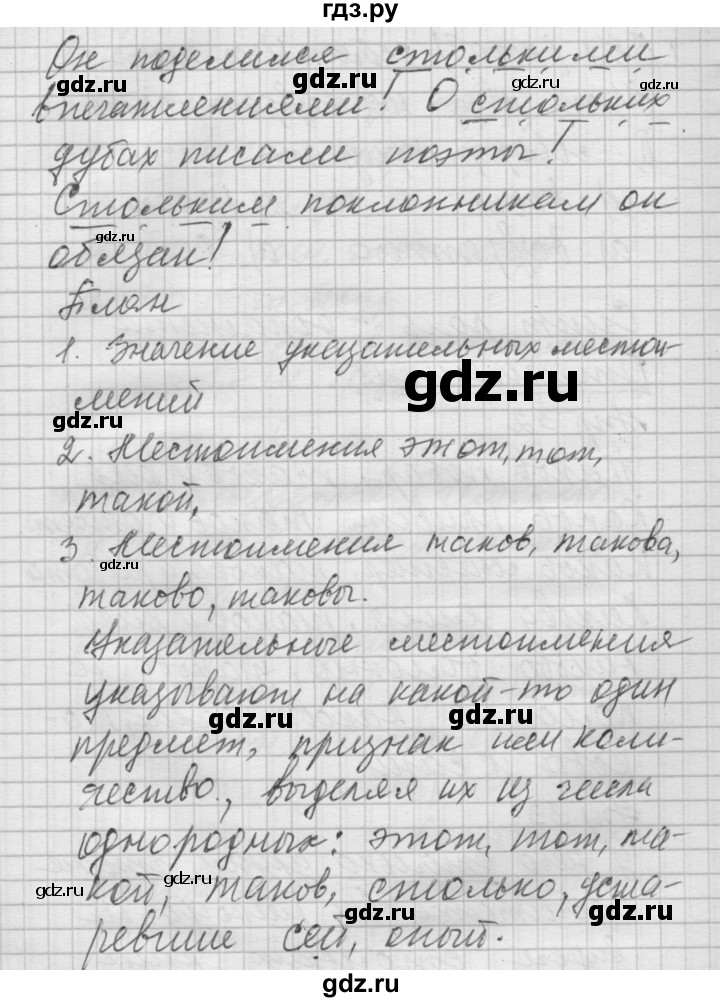 гдз.ру
Он поделился столькими
gdz.ru gdz.ru
впечатлениями! О стольких
gdz.ru
дубах писали поэты!
gdz.ru
Стольким поклонникам он
gdz.ru
обязан!
План
1. Значение указательных местои-
gdz.ru
мений
gdz.ru
2. Местоимения этот, тот,
gdz.ru
такой,
3. Местоимения таков, такова,
gdz.ru
таково, таковы.
Указательные местоимения
указывают на какой-то один
gdz.ru gdz.ru
предмет, признак или коли-
чество, выделяя их из числа
однородных: этот, тот, та-
gdz.ru gdz.ru
кой, таков, столько, уста-
gdz.ru
ревшие сей, оный.
gdz.ru